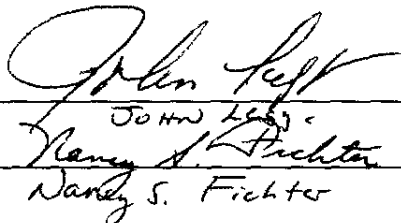 John
JOHN
Nancy S. Fichter
Nancy S. Fichter